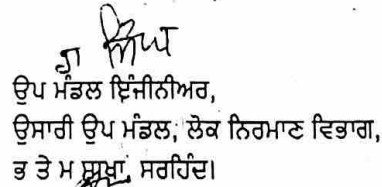 ਉਪ ਮੰਡਲ ਇੰਜੀਨੀਅਰ,
ਉਸਾਰੀ ਉਪ ਮੰਡਲ, ਲੋਕ ਨਿਰਮਾਣ ਵਿਭਾਗ,
ਭ ਤੇ ਮ ਸ਼ਾਖਾ, ਸਰਹਿੰਦ।